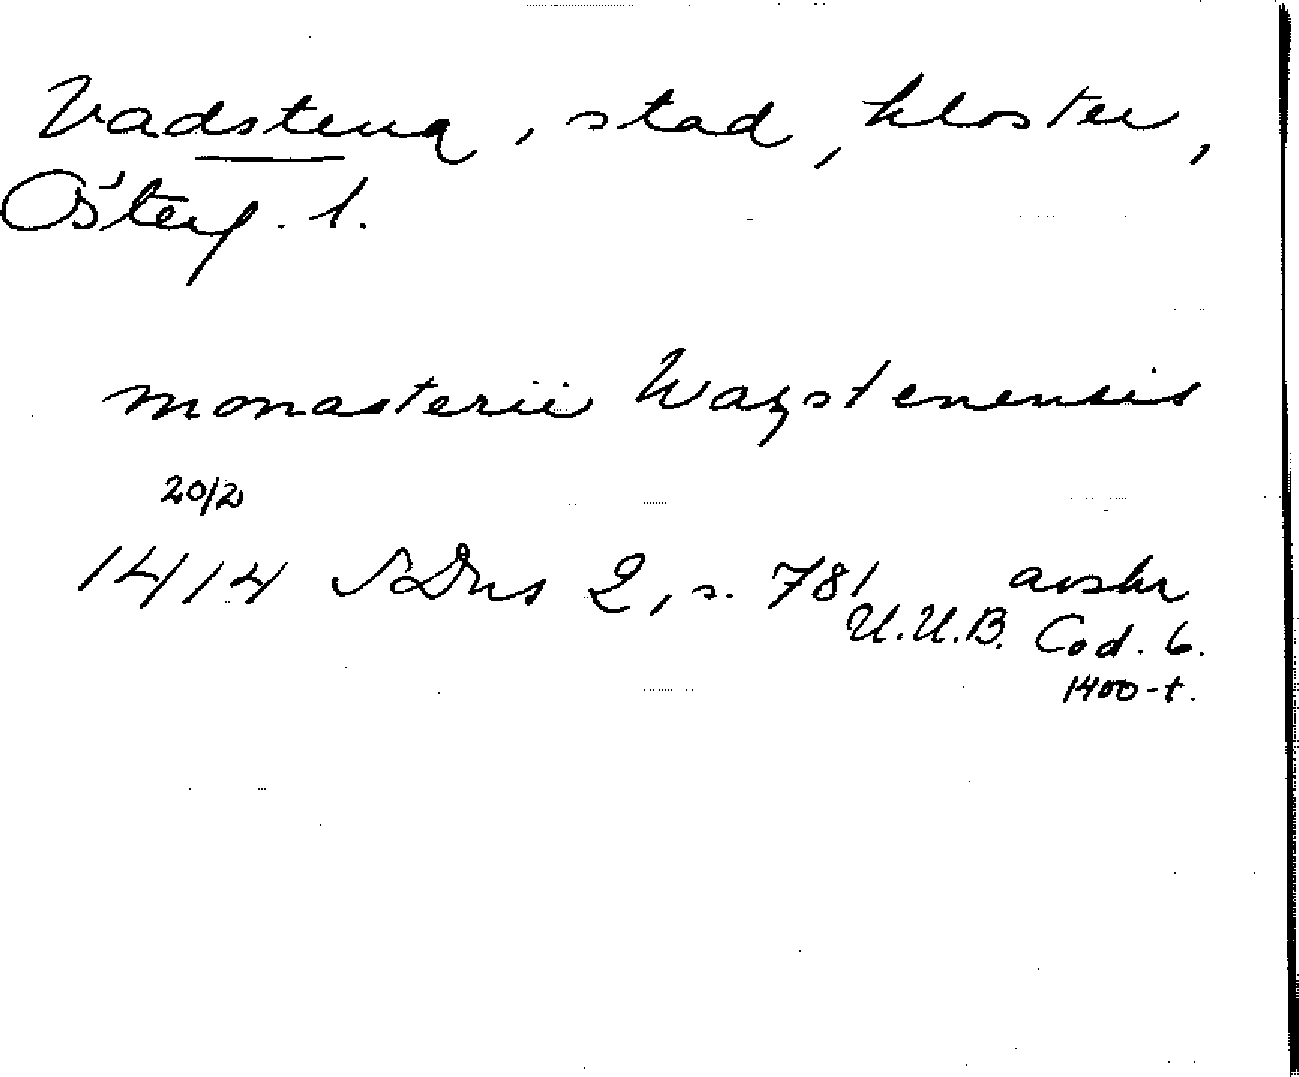 Vadstena, stad, kloster,
Österg. l.
monasterii Wazstenensis
20/2
1414 SDns 2, s. 781 avskr
U.U.B. Cod. 6.
1400-t.